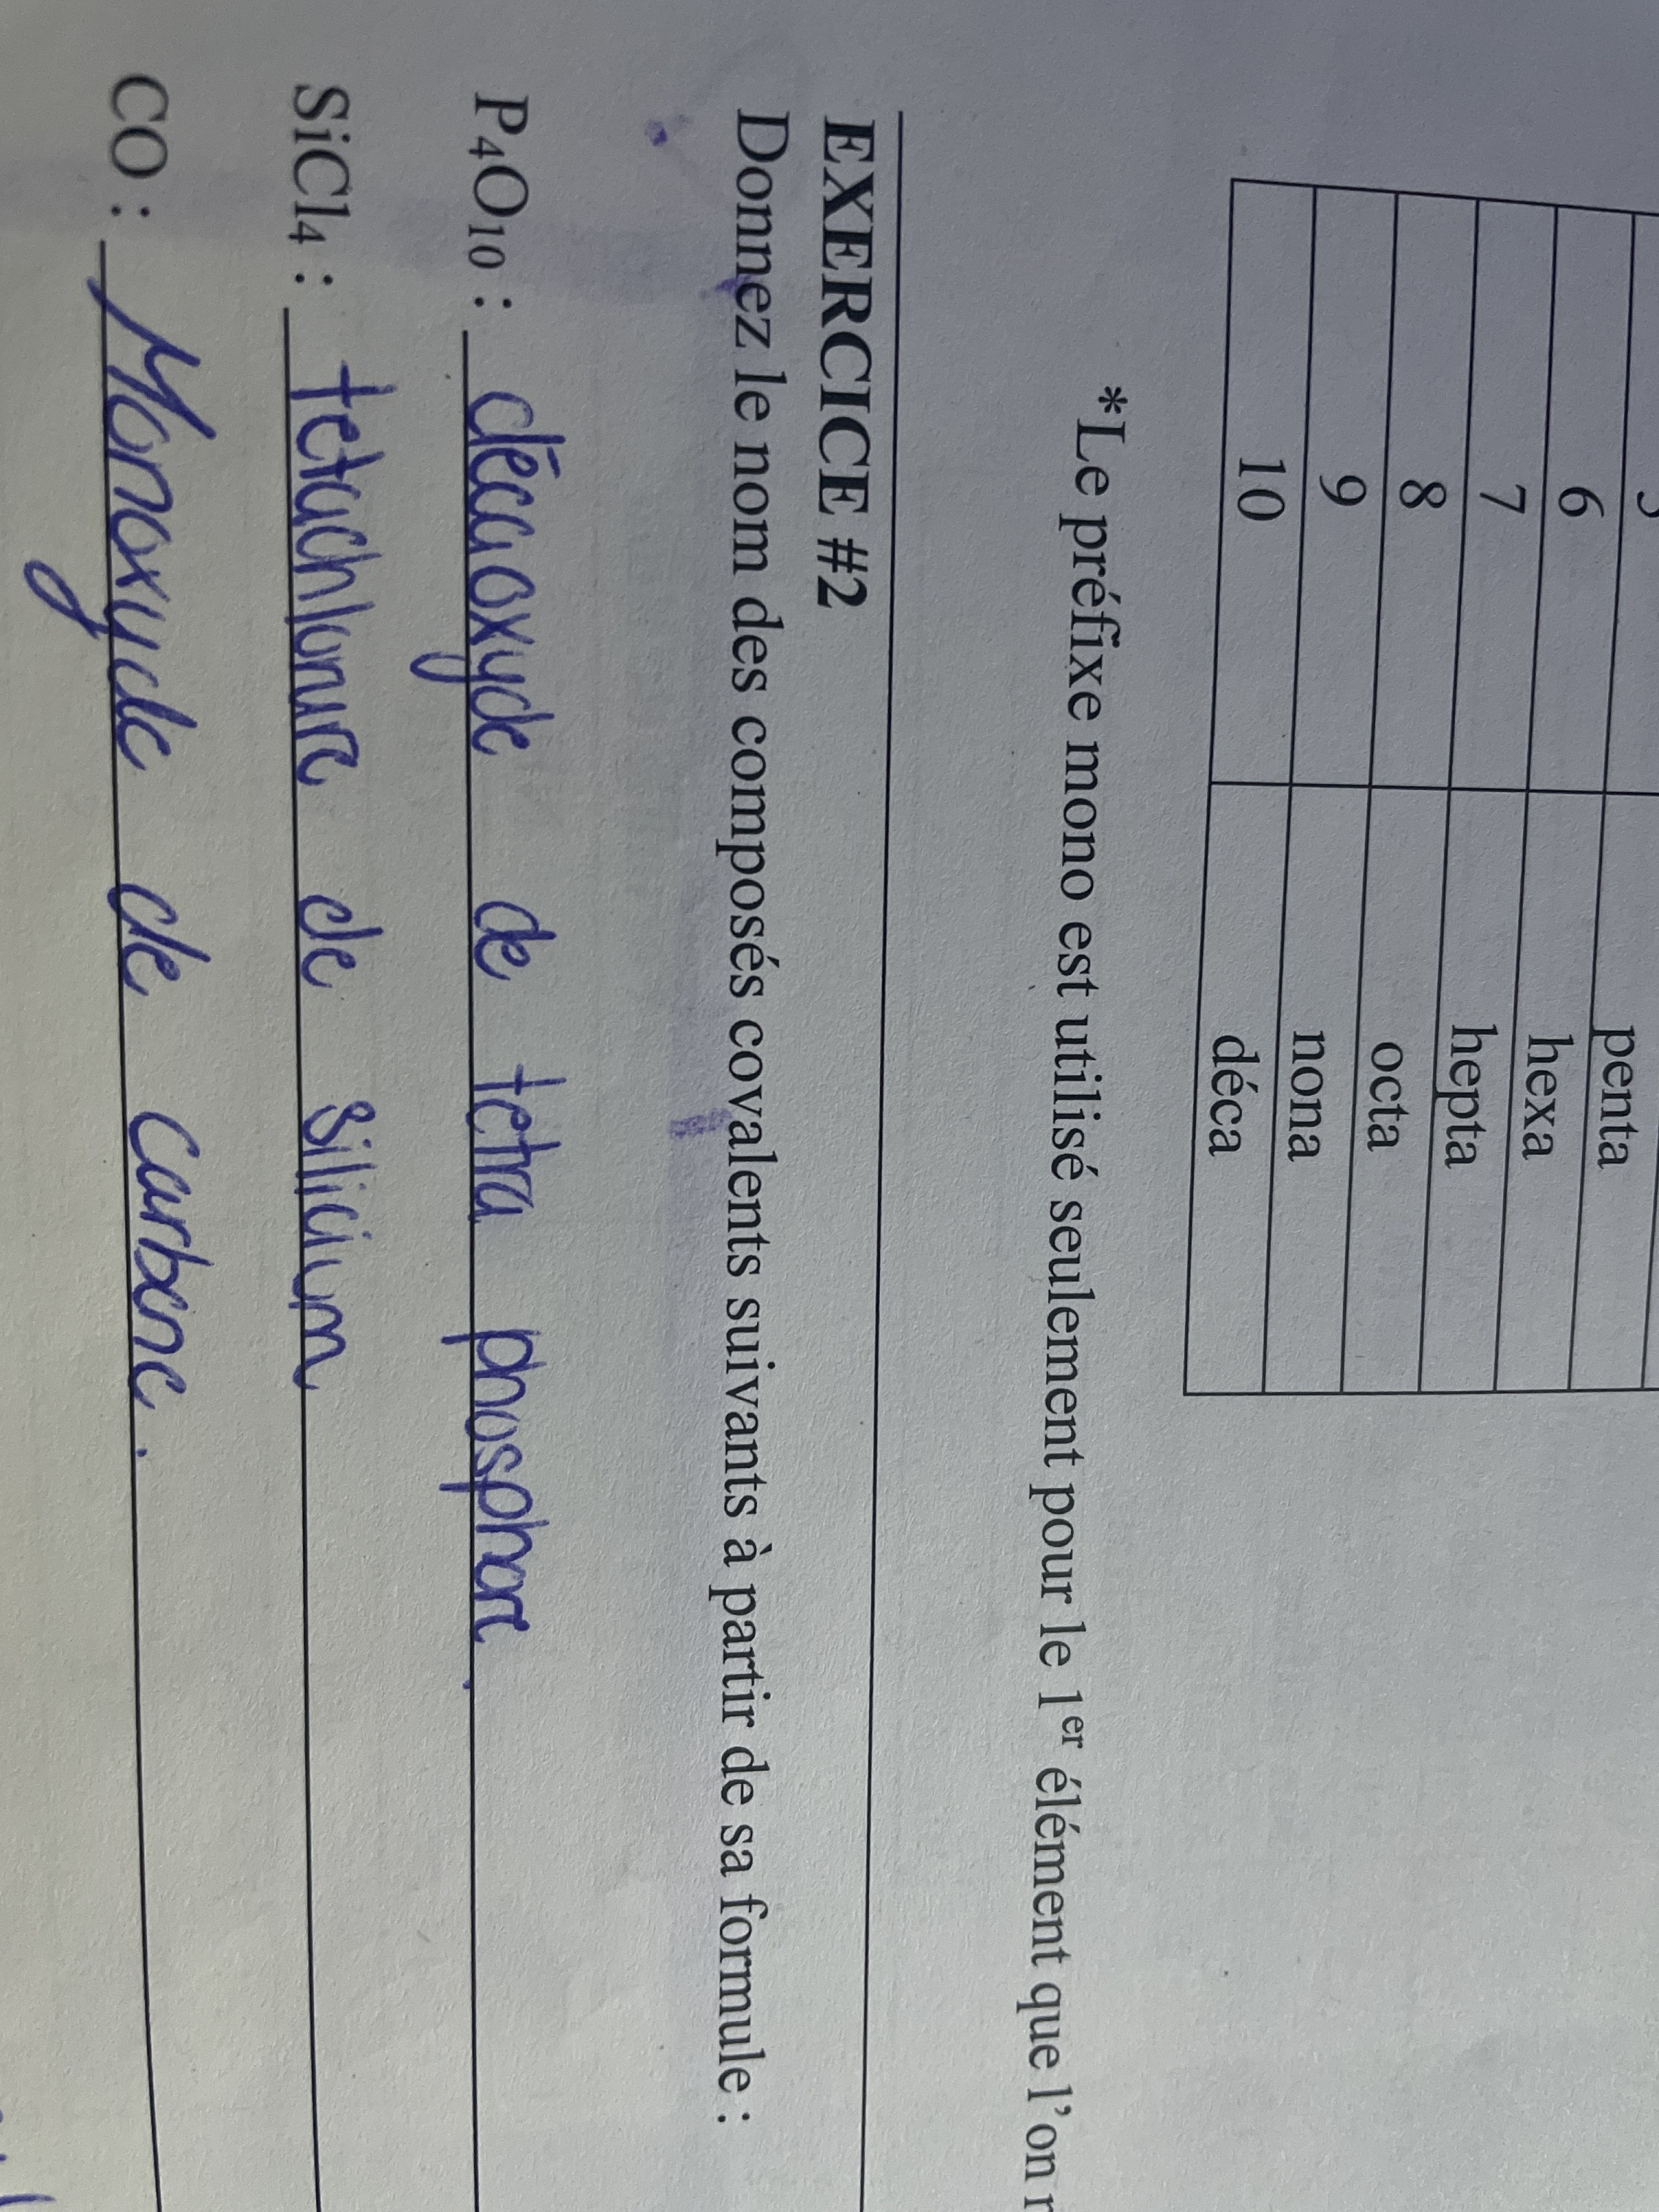 penta
6 hexa
7 hepta
8 octa
9 nona
10 déca
*Le préfixe mono est utilisé seulement pour le 1er élément que l'on
EXERCICE #2
Donnez le nom des composés covalents suivants à partir de sa formule :
P₄O₁₀ : décaoxyde de tetra phosphore.
SiCl₄ : tetachlorure de silicium
CO : Monoxyde de carbone.